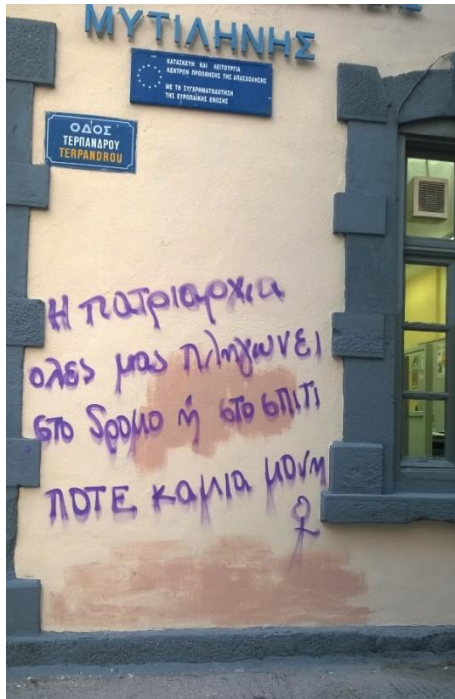 ΜΥΤΙΛΗΝΗΣ
ΚΑΤΑΣΚΕΥΗ ΚΑΙ ΛΕΙΤΟΥΡΓΙΑ
ΚΕΝΤΡΩΝ ΠΡΟΩΘΗΣΗΣ ΤΗΣ ΑΠΑΣΧΟΛΗΣΗΣ
ΜΕ ΤΗ ΣΥΓΧΡΗΜΑΤΟΔΟΤΗΣΗ
ΤΗΣ ΕΥΡΩΠΑΪΚΗΣ ΕΝΩΣΗΣ
ΟΔΟΣ
ΤΕΡΠΑΝΔΡΟΥ
TERPANDROU
Η πατριαρχια
ολες μας πληγωνει
στο δρομο ή στο σπιτι
ΠΟΤΕ καμια μονη